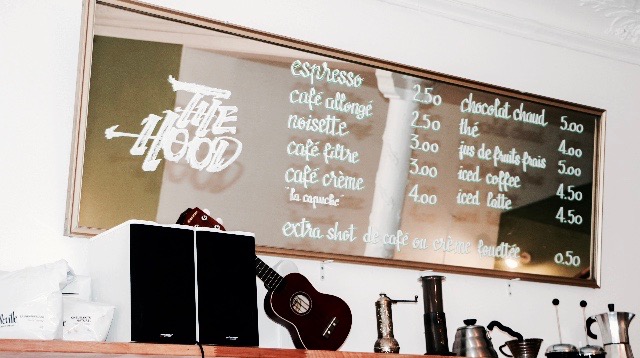 THE
HOOD
espresso 2.50
café allongé 2.50
noisette 3.00
café filtre 3.00
café crème 4.00
"la capuche"
chocolat chaud 5.00
thé 4.00
jus de fruits frais 5.00
iced coffee 4.50
iced latte 4.50
extra shot de café ou crème fouettée 0.50